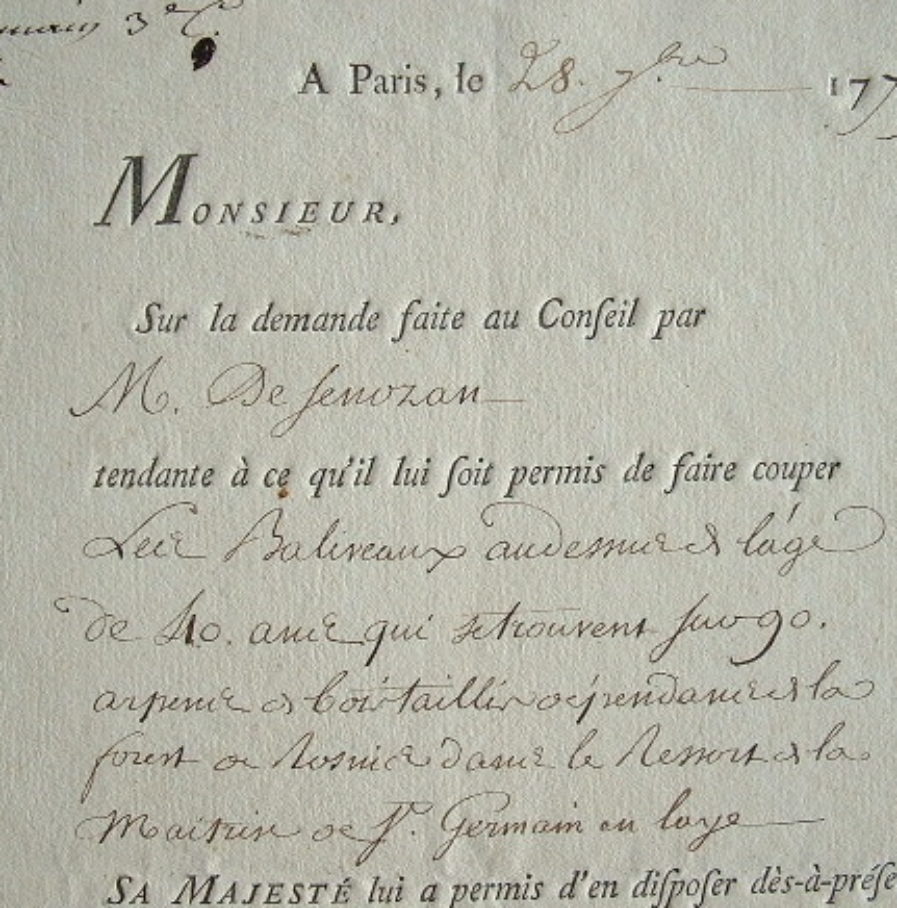 3e C.
A Paris, le 28. 7bre 177
MONSIEUR,
Sur la demande faite au Conſeil par
M. De Senozan
tendante à ce qu'il lui ſoit permis de faire couper
Les Baliveaux audessus de l'âge
de 40. ans qui se trouvent sur 90.
arpens de bois taillis dépendans de la
forest de Rosni dans le Ressort de la
Maitrise de St. Germain en laye
SA MAJESTÉ lui a permis d'en diſpoſer dès-à-préſe